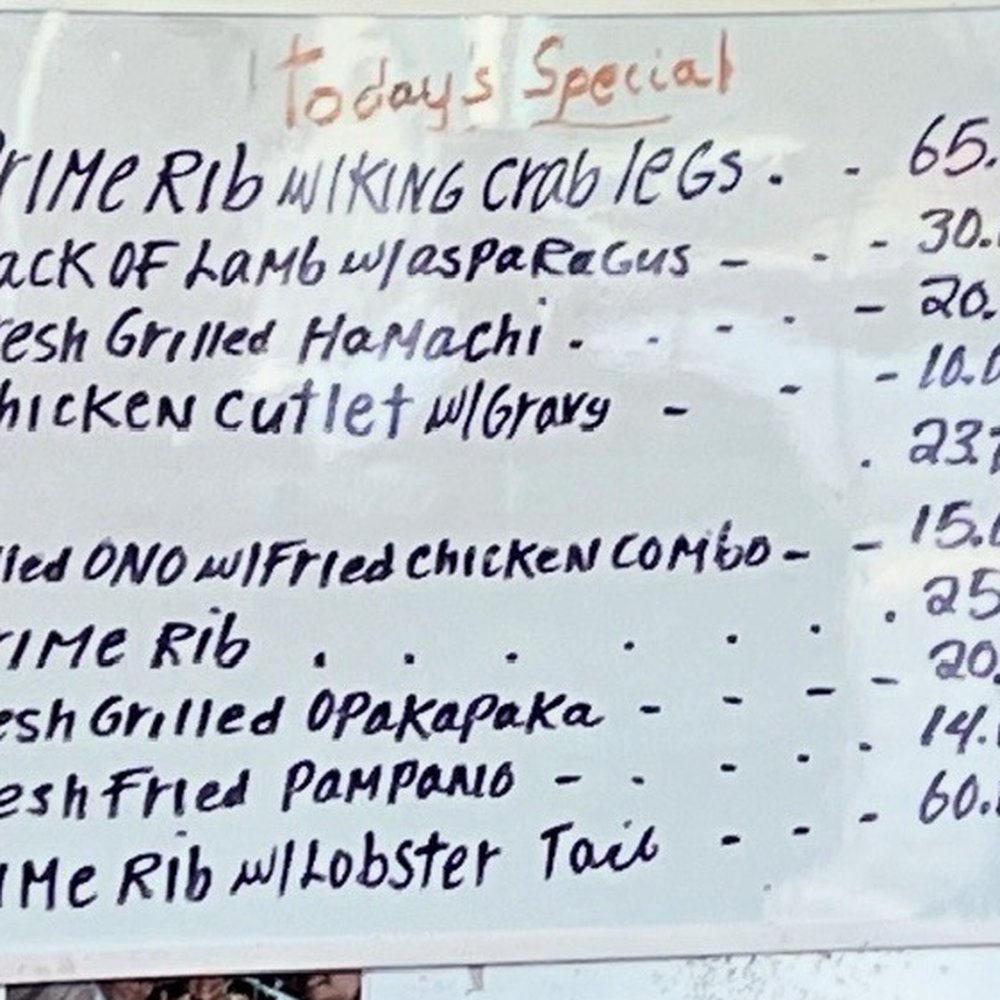 Today's Special
PRIMe RIb w/KING crab leGs . - 65.
ack OF LaMb w/aspaRaGus - . - 30.
resh Grilled HaMachi . . - . - 20.
hicKeN cutlet w/Gravy - - - 10.0
. 23.7
ied ONO w/Fried chicKeN coMbo - - 15.0
rIMe Rib . . . . . . . 25
esh Grilled OpaKapaKa - - - - 20.
esh Fried PaMpaNo - . - . . 14.
IMe Rib w/Lobster Tail - - - 60.